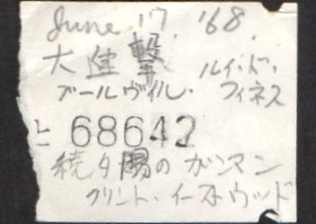 June 17, '68.
大進撃 ルイ・ド・
ブールヴィル・フィネス
と 68642
続夕陽のガンマン
クリント・イーストウッド